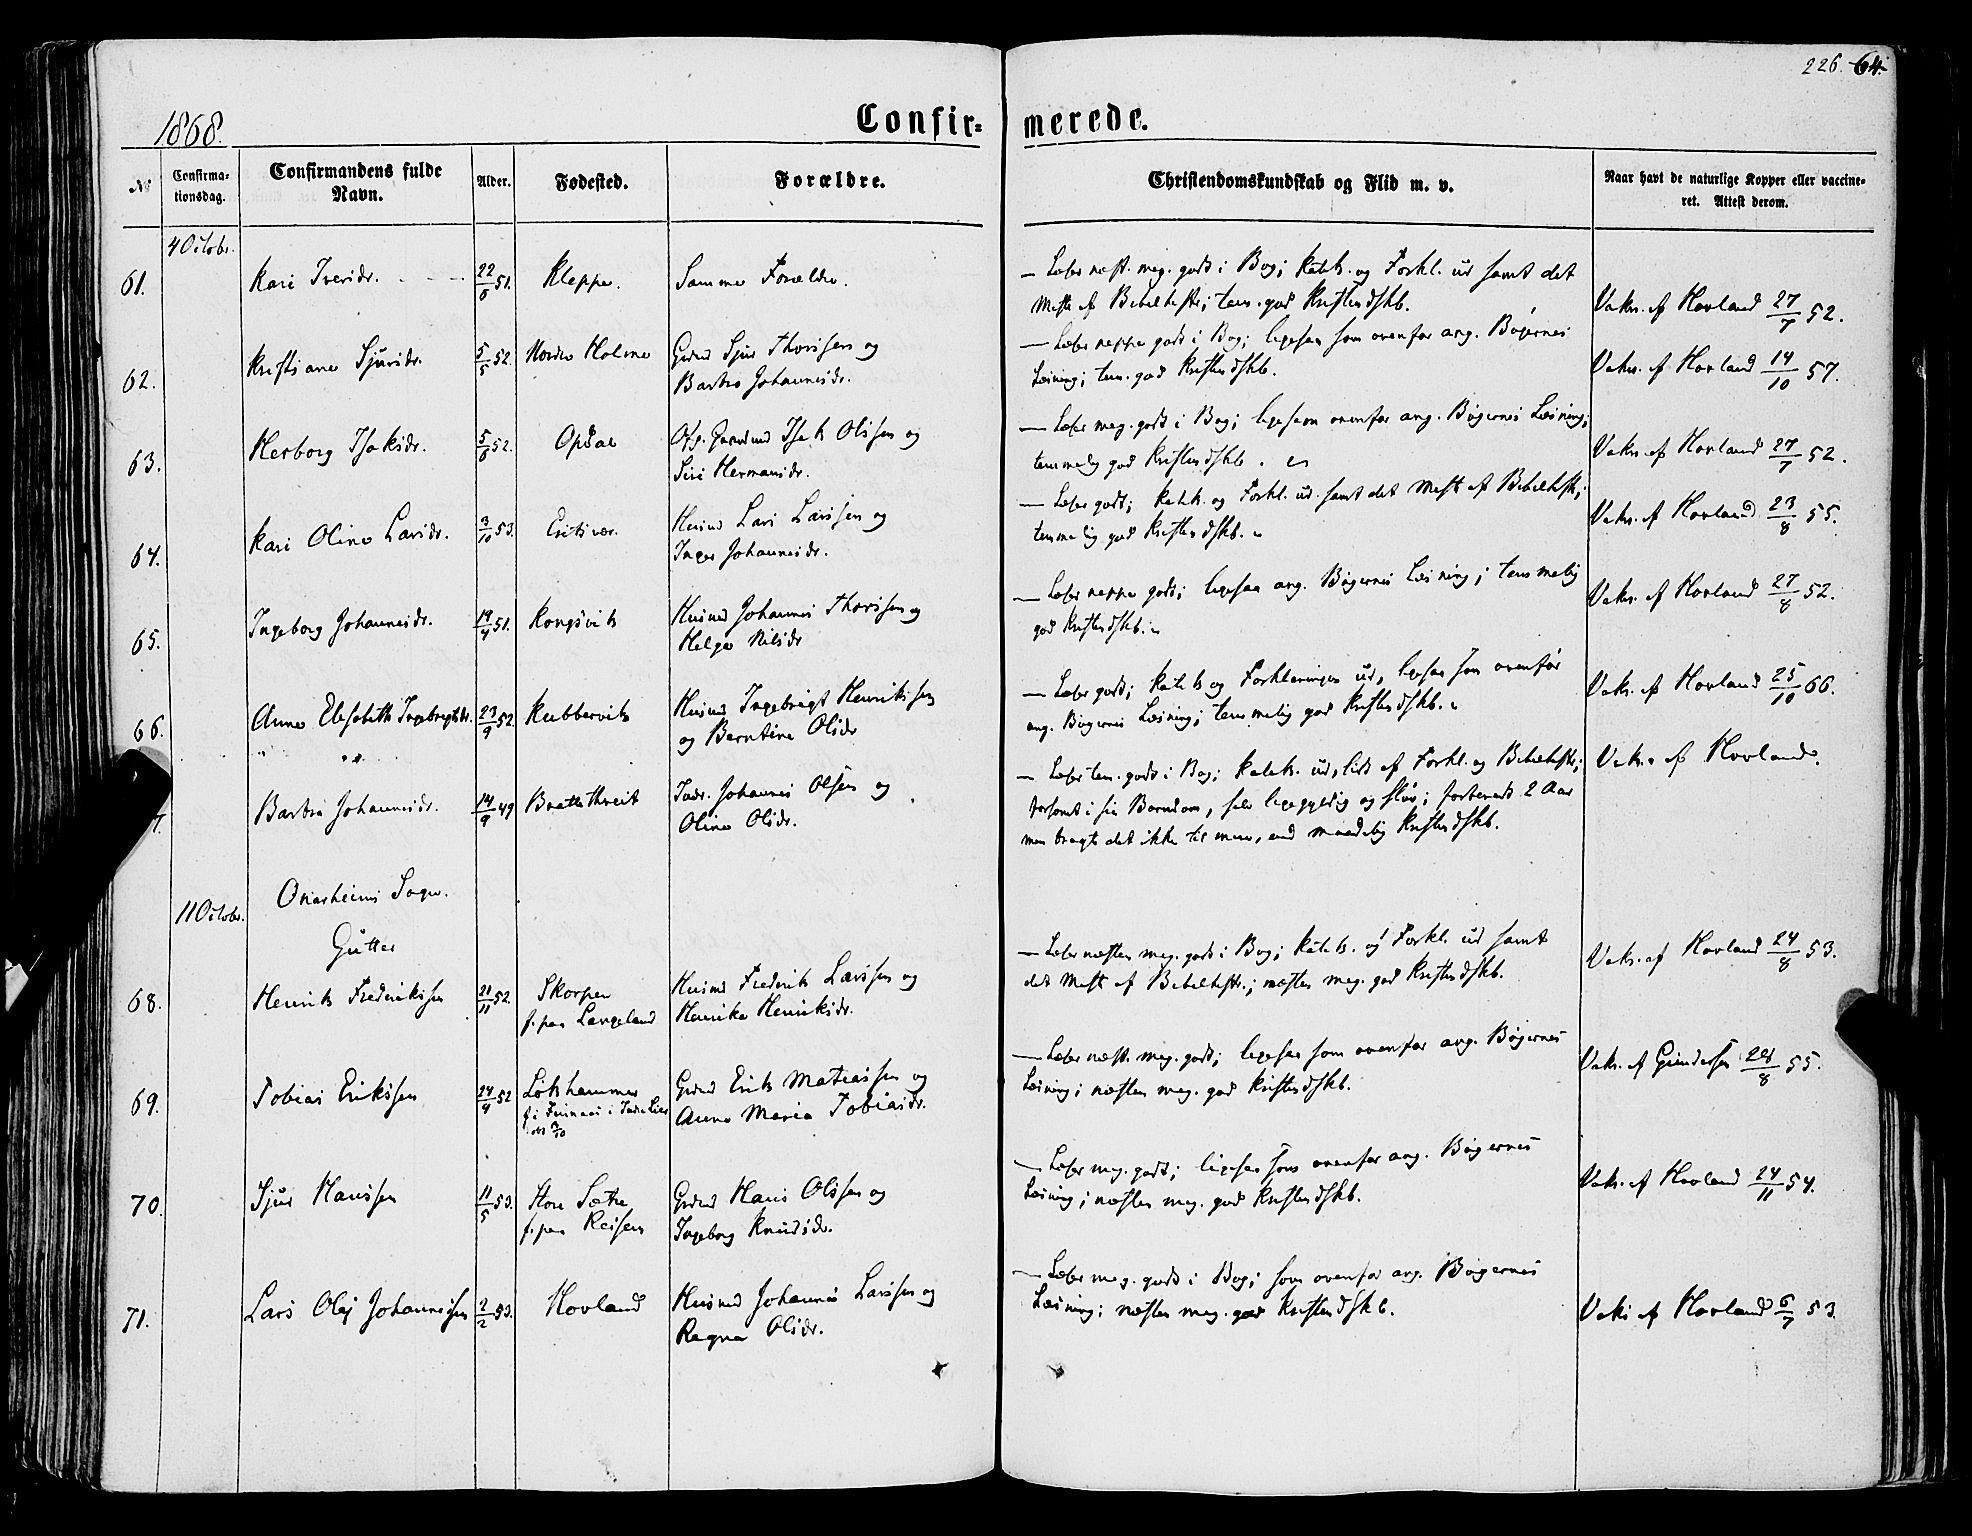 226. 64.
1868.
Confir= merede.
No
Confirma=
tionsdag.
Confirmandens fulde
Navn.
Alder.
Fødested.
Forældre.
Christendomskundskab og Flid m. v.
Naar havt de naturlige Kopper eller vaccine=
ret. Attest derom.
4 Octobr.
61. Kari Iversdr. 22/6 51. Kleppe. Samme Forældre.
— Læser næst. meg. godt i Bog; Katek. og Forkl. ud samt det
Meste af Bibelhist.; tem. god Kristendskb.
Vakc. af Hovland 27/7 52.
62. Kristiane Sjursdr. 5/5 52. Nordre Holme Grdmd Sjur Thorissen og
Barbro Johannesdr.
— Læser neppe godt i Bog; ligesaa som ovenfor ang. Bøgernes
Læsning; tem. god Kristendskb.
Vakc. af Hovland 14/10 57.
63. Herborg Isaksdr. 5/6 52. Opdal Isak Olssen og
Siri Hermansdr.
— Læser meg. godt i Bog; ligesom ovenfor ang. Bøgernes Læsning;
temmelig god Kristendskb.
Vakc. af Hovland 27/7 52.
64. Kari Oline Larsdr. 3/10 53. Husmd Lars Larssen og
Inger Johannesdr.
— Læser godt; Katek. og Forkl. ud samt det Meste af Bibelhist.;
temmelig god Kristendskb.
Vakc. af Hovland 23/8 55.
65. Ingeborg Johannesdr. 19/4 51. Kongsvik Husmd Johannes Thorissen og
Helga Nilsdr
— Læser neppe godt; ligesaa ang. Bøgernes Læsning; temmelig
god Kristendskb.
Vakc. af Hovland 27/8 52.
66. Anne Elisabeth Ingebrigtsdr. 23/9 52. Kubbervik Husmd Ingebrigt Henrikssen
og Berntine Olsdr
— Læser godt; Katek og Forklaringen ud, ligesaa som ovenfor
ang. Bøgernes Læsning; temmelig god Kristendskb.
Vakc. af Hovland 25/10 66.
7. Barbra Johannesdr. 14/9 49 Brattethveit Indr. Johannes Olsen og
Oline Olsdr.
— Læser tem. godt i Bog; Katek. ud, lidt af Forkl. og Bibelhist.;
forsømt i sin Barndom, selv ligegyldig og sløv; forberedt 2 Aar
men bragte det ikke til mere, end maadelig Kristendskb.
Vakc. af Hovland.
11 Octobr. Onarheims Sogn.
Gutter
68. Henrik Frederikssen 20/11 52. Skorpen
f. paa Langeland
Husmd Frederik Larssen og
Henrika Henriksdr.
— Læser næsten meg. godt i Bog; Katek. og Forkl. ud samt
det Meste af Bibelhist.; næsten meg. god Kristendskb.
Vakc. af Hovland 24/8 53.
69. Tobias Erikssen 24/4 52 Løkhammer
Grdmd Erik Matiassen og
Anne Maria Tobiasdr.
— Læser næst. meg. godt; ligesaa som ovenfor ang. Bøgernes
Læsning; næsten meg. god Kristendskb.
Vakc. af Gundersen 28/8 55.
70. Sjur Hanssen 11/5 53. Store Sætre
f. paa Reisen
Grdmd Hans Olssen og
Ingeborg Knudsdr.
— Læser meg. godt; ligesaa som ovenfor ang. Bøgernes
Læsning; næsten meg. god Kristendskb.
Vakc. af Hovland 24/11 54.
71. Lars Olaj Johannessen 2/2 53. Hovland Husmd Johannes Larssen og
Ragna Olsdr.
— Læser meg. godt i Bog; som ovenfor ang. Bøgernes
Læsning; næsten meg. god Kristendskb.
Vakc af Hovland 6/7 53.